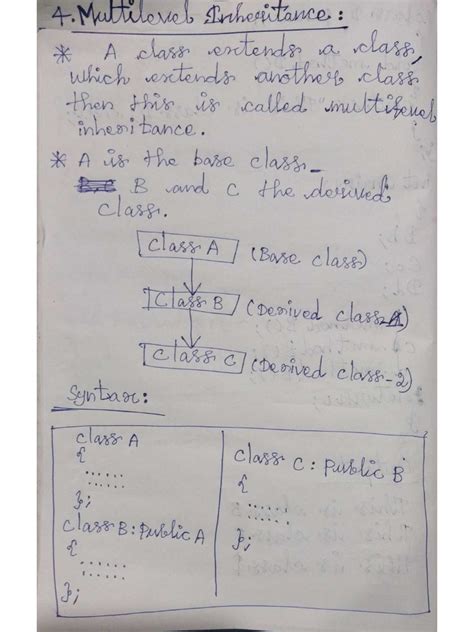 4. Multilevel Inheritance:
* A class extends a class,
which extends another class
then this is called multilevel
inheritance.
* A is the base class
B and C the derived
class.
Class A (Base class)
Class B (Derived class-1)
Class C (Derived class-2)
Syntax:
class A
{
......
......
};
class B: public A
{
......
......
};
class C: public B
{
......
......
};